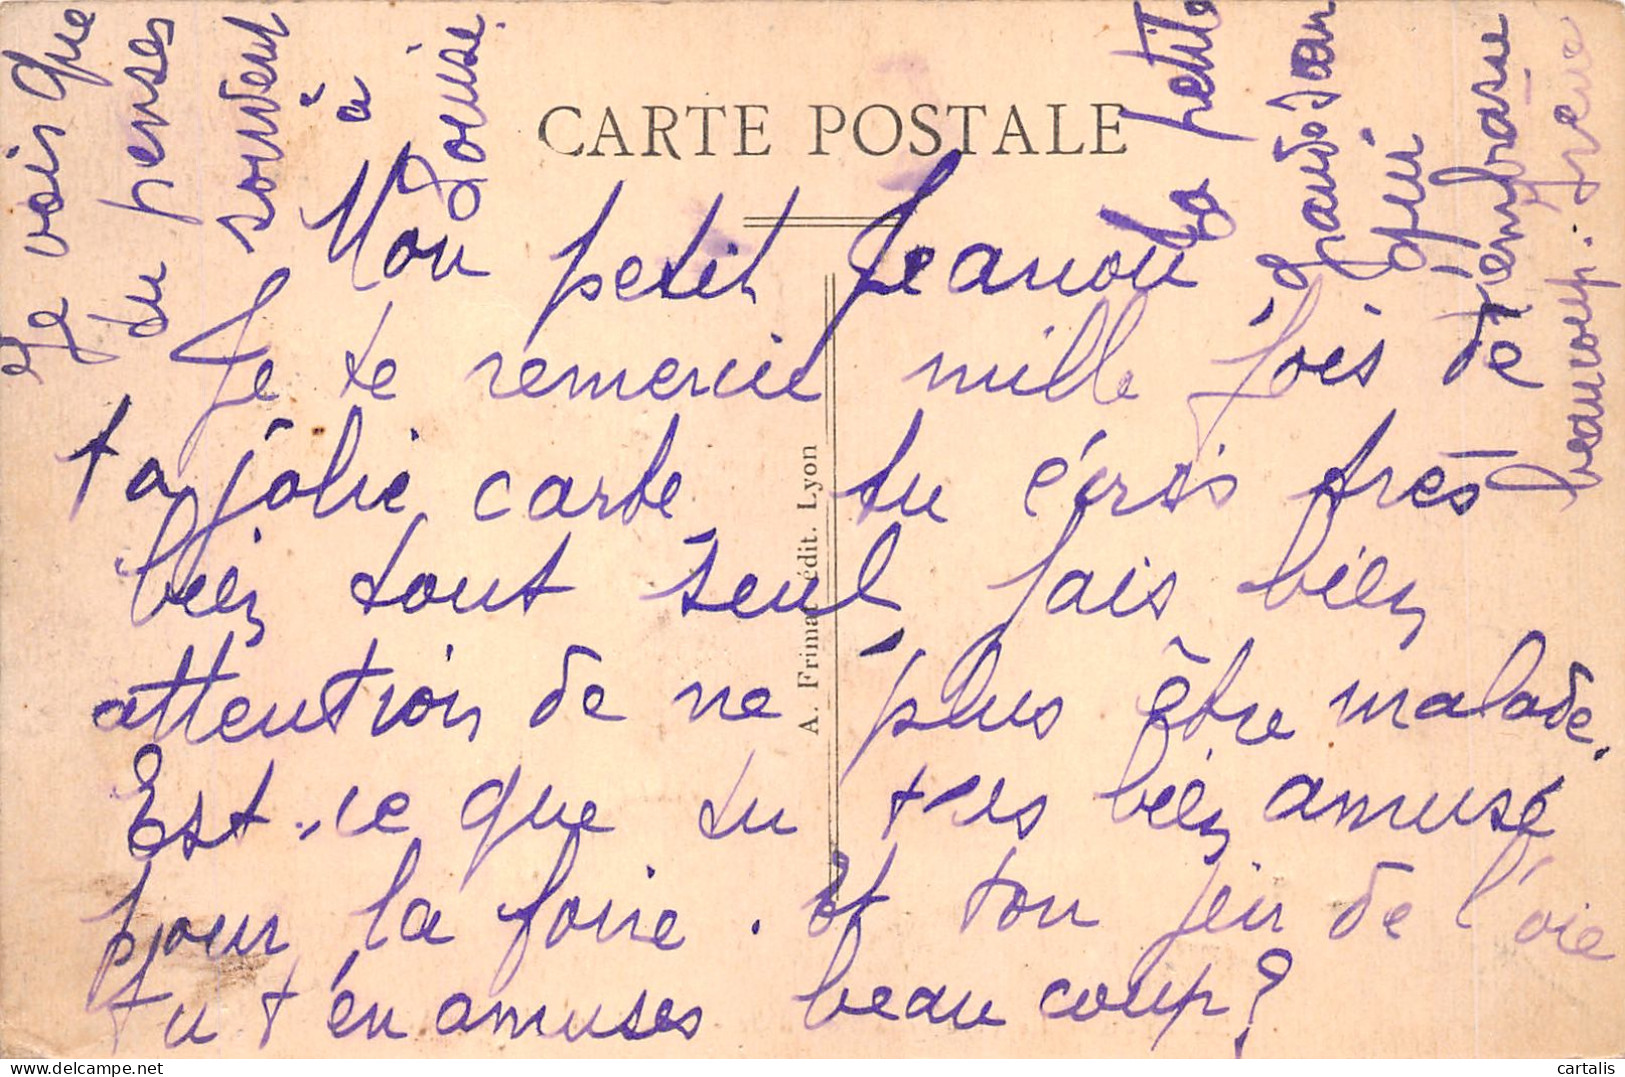 CARTE POSTALE
Mon petit Jeanou
Je te remercie mille fois de
ta jolie carte tu écris très
bien tout seul, fais bien
attention de ne plus être malade.
Est-ce que tu t'es bien amusé
pour la foire. Et ton jeu de l'oie
tu t'en amuses beaucoup?
Je vois que
tu penses
souvent
à
Louise.
ta petite
qui
t'embrasse
beaucoup.
A. Frima édit. Lyon
cartalis
delcampe.net